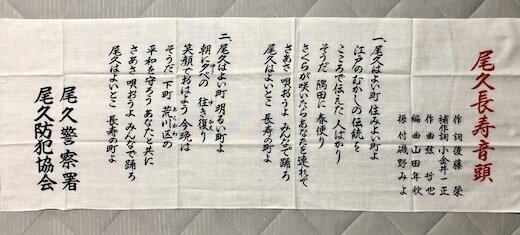 尾久長寿音頭
作詞 後藤 榮
補作詞 小金井一正
作曲 弦 哲也
編曲 山田年秋
振付 磯野みよ
一、尾久はよい町 住みよい町よ
江戸のむかしの 伝統を
こころで伝えた 人ばかり
そうだ 隅田に 春便り
さくらが咲いたら あなたを連れて
さあさ 唄おうよ みんなで踊ろ
尾久はよいとこ 長寿の町よ
二、尾久はよい町 明るい町よ
朝に夕べの 往き復り
笑顔でおはよう 今晩は
そうだ 下町 荒川区の
平和を守ろう あなたと共に
さあさ 唄おうよ みんなで踊ろ
尾久はよいとこ 長寿の町よ
尾久警察署
尾久防犯協会